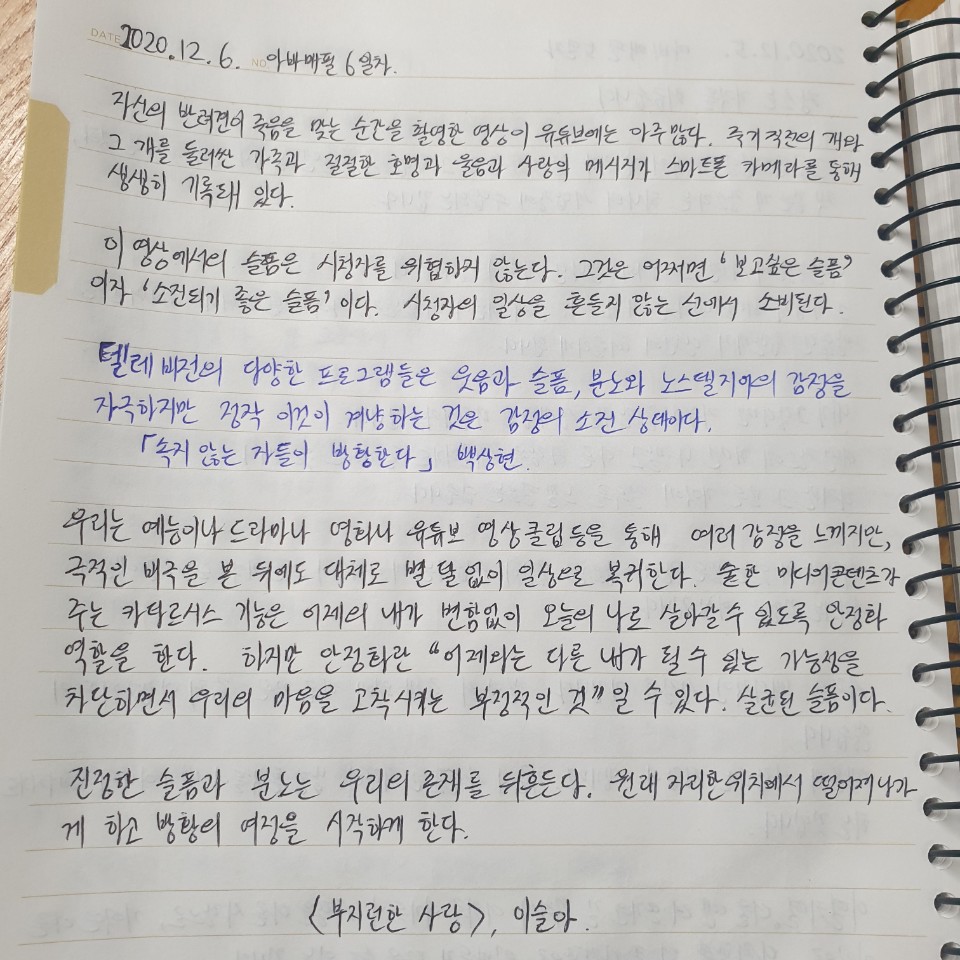 DATE 2020.12.6. NO. 아바매필 6일차.
자신의 반려견이 죽음을 맞는 순간을 촬영한 영상이 유튜브에는 아주 많다. 죽기 직전의 개와
그 개를 둘러싼 가족과 절절한 호명과 울음과 사랑의 메시지가 스마트폰 카메라를 통해
생생히 기록돼 있다.
이 영상에서의 슬픔은 시청자를 위협하지 않는다. 그것은 어쩌면 '보고싶은 슬픔'
이자 '소진되기 좋은 슬픔'이다. 시청장의 일상을 흔들지 않는 선에서 소비된다.
텔레비전의 다양한 프로그램들은 웃음과 슬픔, 분노와 노스텔지아의 감정을
자극하지만 정작 이것이 겨냥하는 것은 감정의 소진 상태이다.
「속지 않는 자들이 방황한다」 백상현.
우리는 예능이나 드라마나 영화나 유튜브 영상클립 등을 통해 여러 감정을 느끼지만,
극적인 비극을 본 뒤에도 대체로 별 탈 없이 일상으로 복귀한다. 숱한 미디어콘텐츠가
주는 카타르시스 기능은 어제의 내가 변함없이 오늘의 나로 살아갈 수 있도록 안정화
역할을 한다. 하지만 안정화란 "어제와는 다른 내가 될 수 있는 가능성을
차단하면서 우리의 마음을 고착시키는 부정적인 것"일 수 있다. 살균된 슬픔이다.
진정한 슬픔과 분노는 우리의 존재를 뒤흔든다. 원래 자리한 위치에서 떨어져 나가
게 하고 방황의 여정을 시작하게 한다.
<부지런한 사랑>, 이슬아.